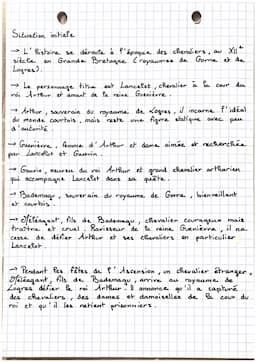 Situation initiale
→ L'histoire se déroule à l'époque des chevaliers, au XIIe
siècle en Grande Bretagne (royaumes de Gorre et de
Logres).
→ Le personnage titre est Lancelot, chevalier à la cour du
roi Arthur et amant de la reine Guenièvre.
→ Arthur, souverain du royaume de Logres, il incarne l'idéal
du monde courtois, mais reste une figure statique avec peu
d'autorité.
→ Guenièvre, femme d'Arthur et dame aimée et recherchée
par Lancelot et Gauvain.
→ Gauvin, neveu du roi Arthur et grand chevalier arthurien
qui accompagne Lancelot dans sa quête.
→ Bademagu, souverain du royaume de Gorre, bienveillant
et courtois.
→ Méléagant, fils de Bademagu, chevalier courageux mais
traître et cruel. Ravisseur de la reine Guenièvre, il ne
cesse de défier Arthur et ses chevaliers en particulier
Lancelot.
→ Pendant les fêtes de l'Ascension, un chevalier étranger,
Méléagant, fils de Bademagu, arrive au royaume de
Logres défier le roi Arthur. Il annonce qu'il a capturé
des chevaliers, des dames et damoiselles de la cour du
roi et qu'il les retient prisonniers.